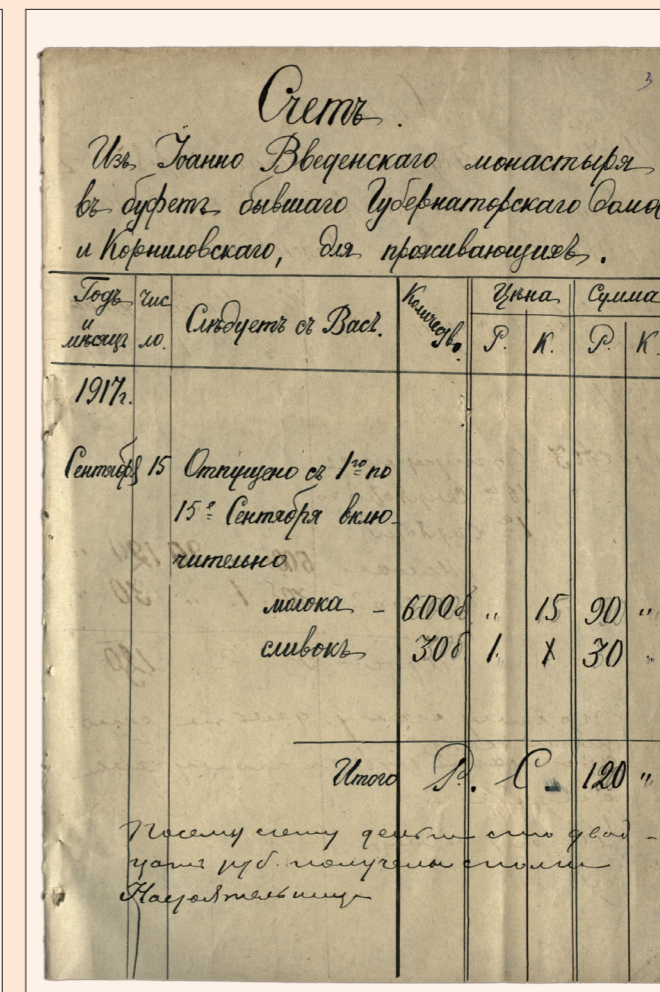 3
Счетъ.
Изъ Іоанно Введенскаго монастыря
въ буфетъ бывшаго Губернаторскаго Дома
и Корниловскаго, для проживающихъ.
Годъ и мѣсяцъ Чис ло. Слѣдуетъ съ Васъ. Количество. Цѣна Сумма
Р. К. Р. К.
1917г.
Сентября 15 Отпущено съ 1го по
15е Сентября вклю-
чительно
молока - 600б „ 15 90 „
сливокъ 30б 1. х 30 „
Итого Р. С. 120 „
По сему счету деньги сто двад-
цать руб. получены сполна
Настоятельница